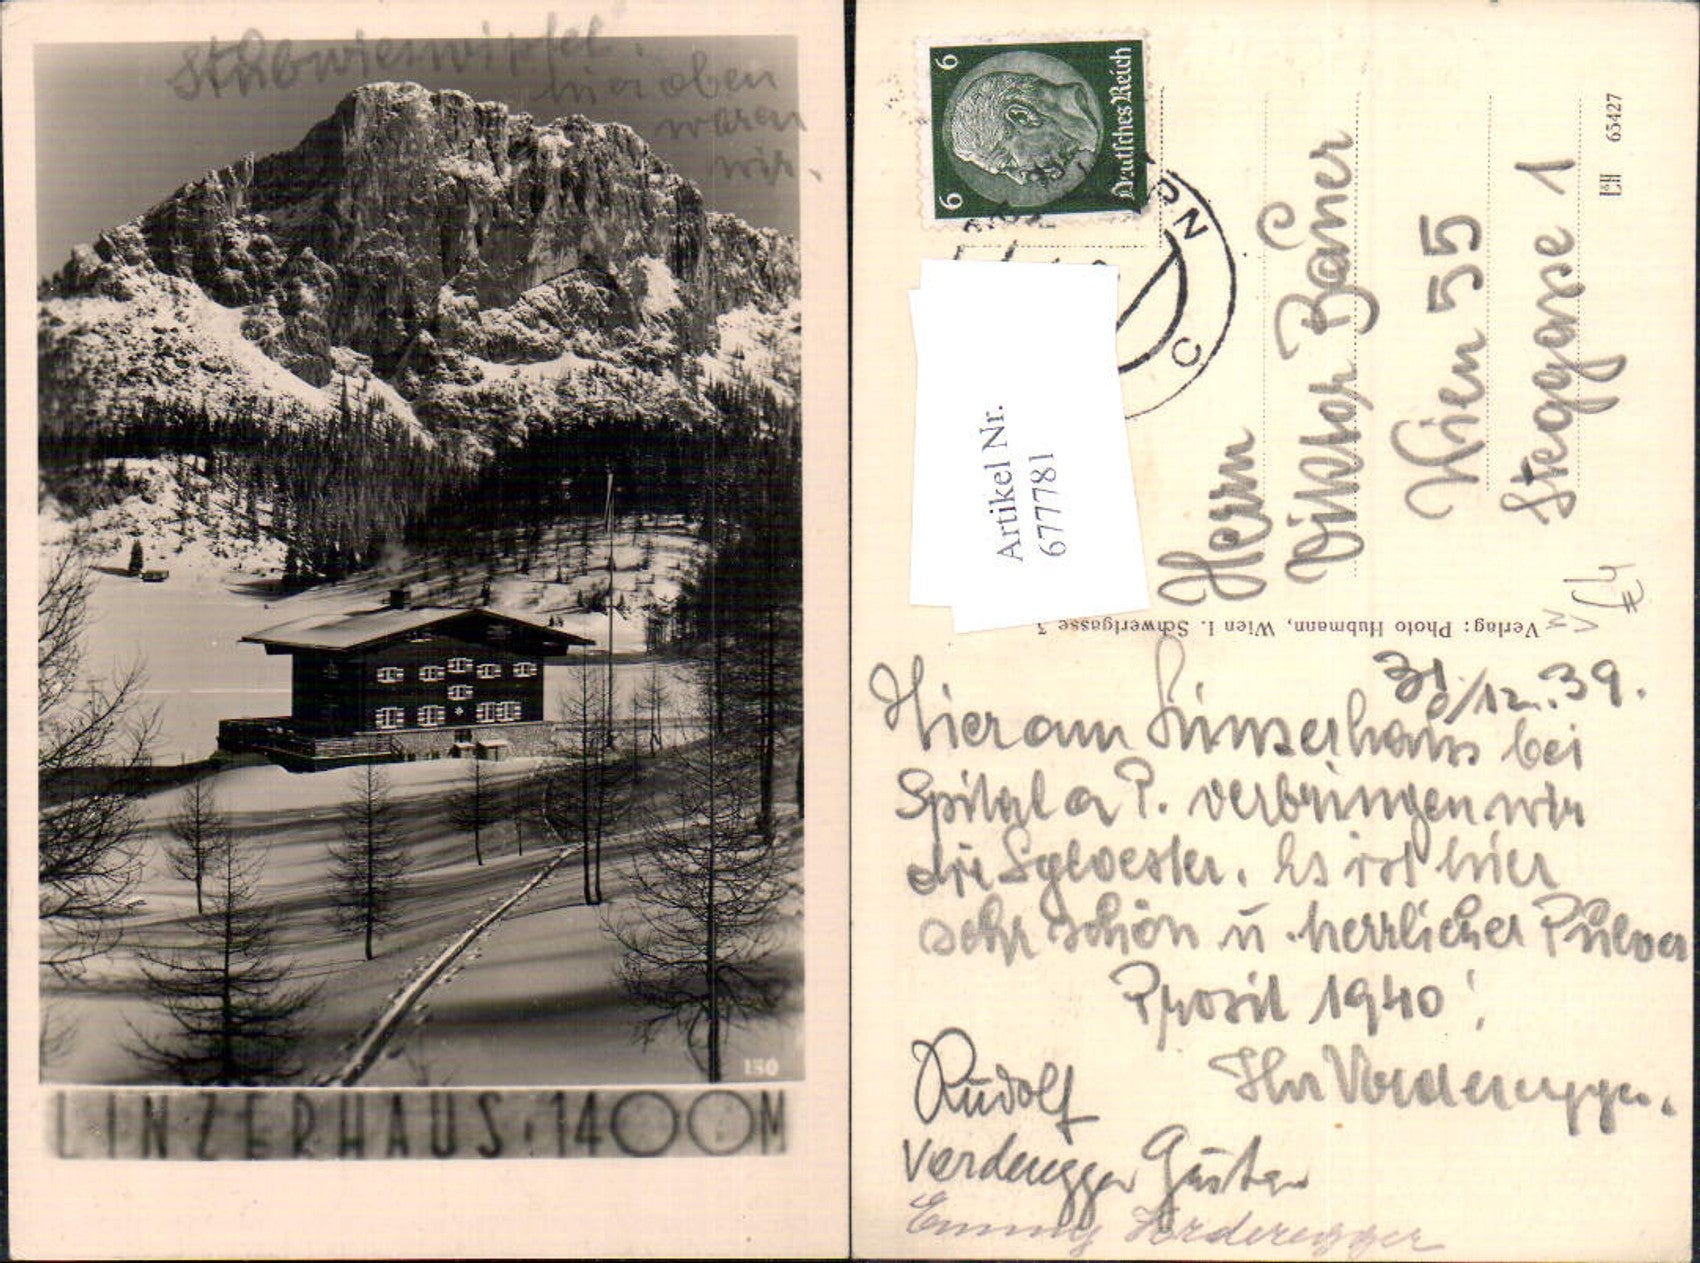 Stubwieswipfel.
hier oben
waren
wir.
130
LINZERHAUS, 1400M
6
6
Deutsches Reich
C
Artikel Nr.
677781
EH 65427
Herrn
Viktor Bauer
Wien 55
Steggasse 1
Verlag: Photo Hubmann, Wien I. Schwertgasse 3
31/12.39.
Hier am Linzerhaus bei
Spital a P. verbringen wir
die Sylvester. Es ist hier
sehr schön u. herrlicher Pulver
Prosit 1940!
Ihr Vorderegger.
Rudolf
Vorderegger Gustav
Emmy Vorderegger